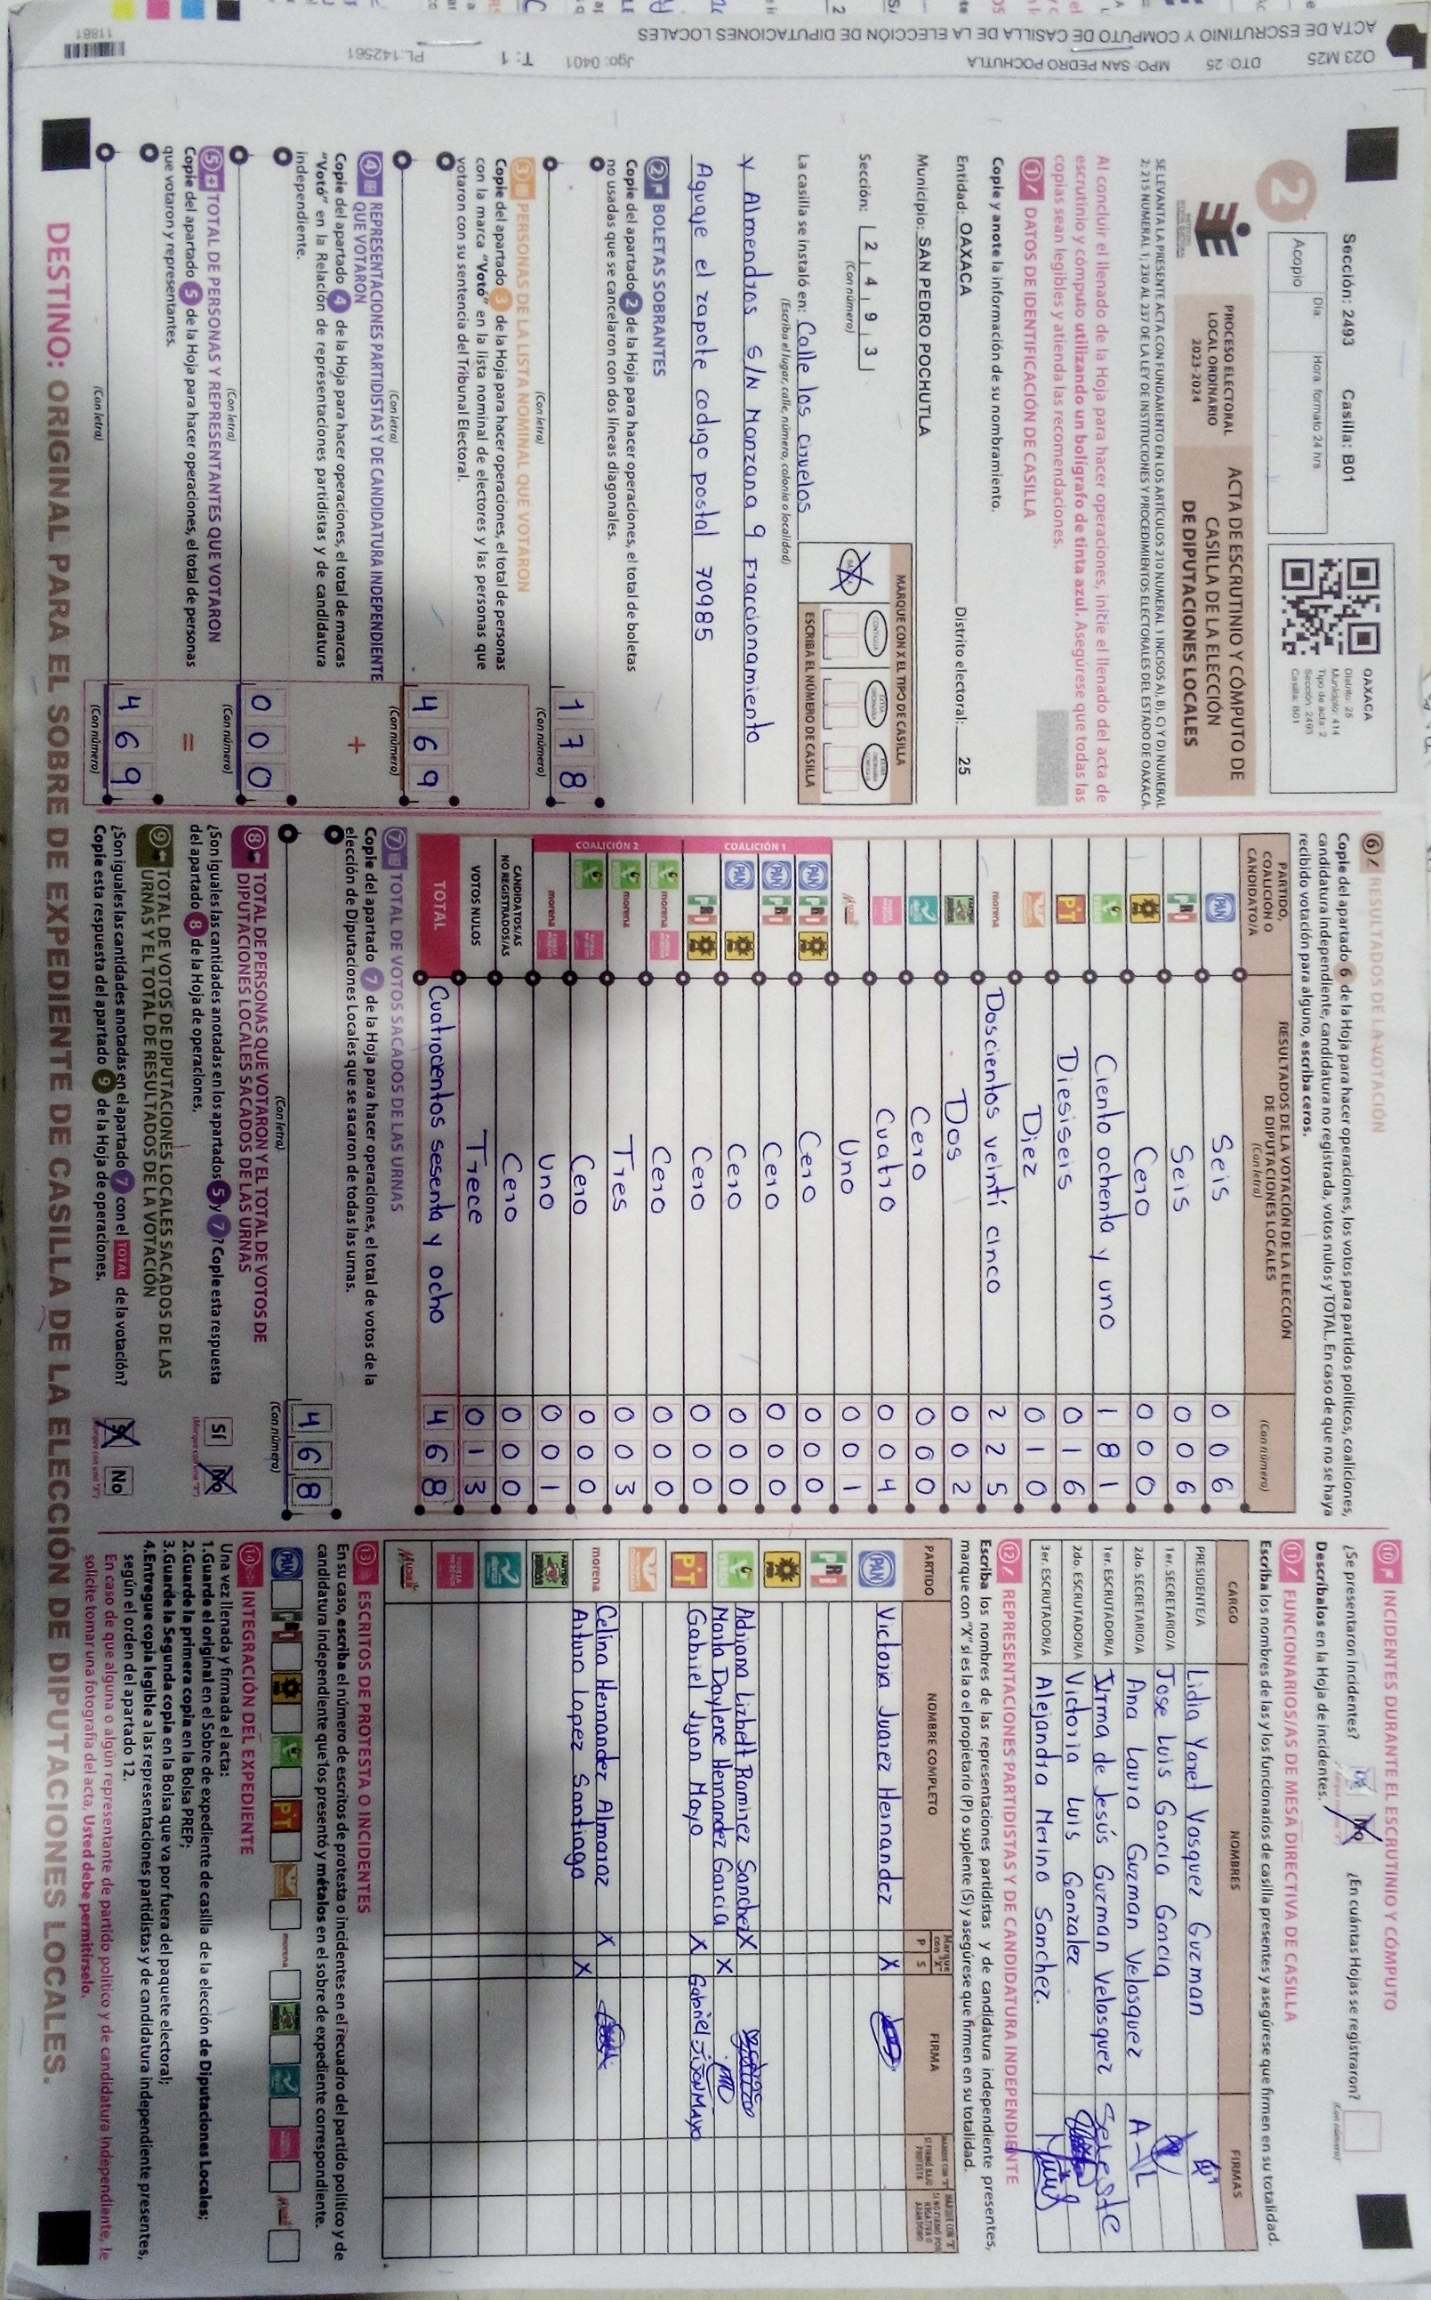 O23 M25 DTO: 25 MPO: SAN PEDRO POCHUTLA Jgo: 0401 T: 1 PL:142561
ACTA DE ESCRUTINIO Y CÓMPUTO DE CASILLA DE LA ELECCIÓN DE DIPUTACIONES LOCALES
11881
Sección: 2493 Casilla: B01
2
Acopio
Día:
Hora: formato 24 hrs
OAXACA
Distrito: 25
Municipio: 414
Tipo de acta: 2
Sección: 2493
Casilla: B01
PROCESO ELECTORAL
LOCAL ORDINARIO
2023-2024
ACTA DE ESCRUTINIO Y CÓMPUTO DE
CASILLA DE LA ELECCIÓN
DE DIPUTACIONES LOCALES
SE LEVANTA LA PRESENTE ACTA CON FUNDAMENTO EN LOS ARTÍCULOS 210 NUMERAL 1 INCISOS A), B), C) Y D) NUMERAL
2; 215 NUMERAL 1; 230 AL 237 DE LA LEY DE INSTITUCIONES Y PROCEDIMIENTOS ELECTORALES DEL ESTADO DE OAXACA.
Al concluir el llenado de la Hoja para hacer operaciones, inicie el llenado del acta de
escrutinio y cómputo utilizando un bolígrafo de tinta azul. Asegúrese que todas las
copias sean legibles y atienda las recomendaciones.
1 DATOS DE IDENTIFICACIÓN DE CASILLA
Copie y anote la información de su nombramiento.
Entidad: OAXACA Distrito electoral: 25
Municipio: SAN PEDRO POCHUTLA
Sección: 2 4 9 3
(Con número)
MARQUE CON X EL TIPO DE CASILLA
ESCRIBA EL NÚMERO DE CASILLA
La casilla se instaló en: Calle los ciruelos
(Escriba el lugar, calle, número, colonia o localidad)
y Almendros S/N Manzana 9 Fraccionamiento
Aguaje el zapote codigo postal 70985
2 BOLETAS SOBRANTES
Copie del apartado 2 de la Hoja para hacer operaciones, el total de boletas
no usadas que se cancelaron con dos líneas diagonales.
1 7 8
(Con letra) (Con número)
3 PERSONAS DE LA LISTA NOMINAL QUE VOTARON
Copie del apartado 3 de la Hoja para hacer operaciones, el total de personas
con la marca "Votó" en la lista nominal de electores y las personas que
votaron con su sentencia del Tribunal Electoral.
4 6 9
(Con letra) (Con número)
4 REPRESENTACIONES PARTIDISTAS Y DE CANDIDATURA INDEPENDIENTE
QUE VOTARON
+
Copie del apartado 4 de la Hoja para hacer operaciones, el total de marcas
"Votó" en la Relación de representaciones partidistas y de candidatura
independiente.
0 0 0
(Con letra) (Con número)
5 TOTAL DE PERSONAS Y REPRESENTANTES QUE VOTARON
=
Copie del apartado 5 de la Hoja para hacer operaciones, el total de personas
que votaron y representantes.
4 6 9
(Con letra) (Con número)
6 RESULTADOS DE LA VOTACIÓN
Copie del apartado 6 de la Hoja para hacer operaciones, los votos para partidos políticos, coaliciones,
candidatura independiente, candidatura no registrada, votos nulos y TOTAL. En caso de que no se haya
recibido votación para alguno, escriba ceros.
PARTIDO,
COALICIÓN O
CANDIDATO/A
RESULTADOS DE LA VOTACIÓN DE LA ELECCIÓN
DE DIPUTACIONES LOCALES
(Con letra)
(Con número)
PAN Seis 0 0 6
PRI Seis 0 0 6
Cero 0 0 0
Ciento ochenta y uno 1 8 1
PT Diesiseis 0 1 6
Diez 0 1 0
morena Doscientos veinti cinco 2 2 5
Dos 0 0 2
Cero 0 0 0
Cuatro 0 0 4
Uno 0 0 1
COALICIÓN 1
PAN PRI Cero 0 0 0
PAN PRI Cero 0 0 0
PAN Cero 0 0 0
PRI Cero 0 0 0
COALICIÓN 2
morena Cero 0 0 0
morena Tres 0 0 3
Cero 0 0 0
morena Uno 0 0 1
CANDIDATOS/AS
NO REGISTRADOS/AS Cero 0 0 0
VOTOS NULOS Trece 0 1 3
TOTAL Cuatrocientos sesenta y ocho 4 6 8
7 TOTAL DE VOTOS SACADOS DE LAS URNAS
Copie del apartado 7 de la Hoja para hacer operaciones, el total de votos de la
elección de Diputaciones Locales que se sacaron de todas las urnas.
4 6 8
(Con letra) (Con número)
8 TOTAL DE PERSONAS QUE VOTARON Y EL TOTAL DE VOTOS DE
DIPUTACIONES LOCALES SACADOS DE LAS URNAS
¿Son iguales las cantidades anotadas en los apartados 5 y 7? Copie esta respuesta
del apartado 8 de la Hoja de operaciones.
Sí No
9 TOTAL DE VOTOS DE DIPUTACIONES LOCALES SACADOS DE LAS
URNAS Y EL TOTAL DE RESULTADOS DE LA VOTACIÓN
¿Son iguales las cantidades anotadas en el apartado 7 con el TOTAL de la votación?
Copie esta respuesta del apartado 9 de la Hoja de operaciones.
Sí No
10 INCIDENTES DURANTE EL ESCRUTINIO Y CÓMPUTO
¿Se presentaron incidentes? Sí No ¿En cuántas Hojas se registraron?
(Con número)
Descríbalos en la Hoja de incidentes.
11 FUNCIONARIOS/AS DE MESA DIRECTIVA DE CASILLA
Escriba los nombres de las y los funcionarios de casilla presentes y asegúrese que firmen en su totalidad.
CARGO NOMBRES FIRMAS
PRESIDENTE/A Lidia Yanet Vasquez Guzman
1er. SECRETARIO/A Jose Luis Garcia Garcia
2do. SECRETARIO/A Ana Laura Guzman Velasquez
1er. ESCRUTADOR/A Irma de Jesús Guzman Velasquez
2do. ESCRUTADOR/A Victoria Luis Gonzalez
3er. ESCRUTADOR/A Alejandra Merino Sanchez.
12 REPRESENTACIONES PARTIDISTAS Y DE CANDIDATURA INDEPENDIENTE
Escriba los nombres de las representaciones partidistas y de candidatura independiente presentes,
marque con "X" si es la o el propietario (P) o suplente (S) y asegúrese que firmen en su totalidad.
PARTIDO NOMBRE COMPLETO Marque con "X" P S FIRMA
PAN Victoria Juarez Hernandez X
PRI
Adriana Lizbett Ramirez Sanchez X
Maria Daylene Hernandez Garcia X
PT Gabriel Jijon Mayo X Gabriel Jijon Mayo
morena Celina Hernandez Almaraz X
Arturo Lopez Santiago X
13 ESCRITOS DE PROTESTA O INCIDENTES
En su caso, escriba el número de escritos de protesta o incidentes en el recuadro del partido político y de
candidatura independiente que los presentó y métalos en el sobre de expediente correspondiente.
PAN PRI PT morena
14 INTEGRACIÓN DEL EXPEDIENTE
Una vez llenada y firmada el acta:
1.Guarde el original en el Sobre de expediente de casilla de la elección de Diputaciones Locales;
2.Guarde la primera copia en la Bolsa PREP;
3.Guarde la Segunda copia en la Bolsa que va por fuera del paquete electoral;
4.Entregue copia legible a las representaciones partidistas y de candidatura independiente presentes,
según el orden del apartado 12.
En caso de que alguna o algún representante de partido político y de candidatura Independiente, le
solicite tomar una fotografía del acta, Usted debe permitírselo.
DESTINO: ORIGINAL PARA EL SOBRE DE EXPEDIENTE DE CASILLA DE LA ELECCIÓN DE DIPUTACIONES LOCALES.